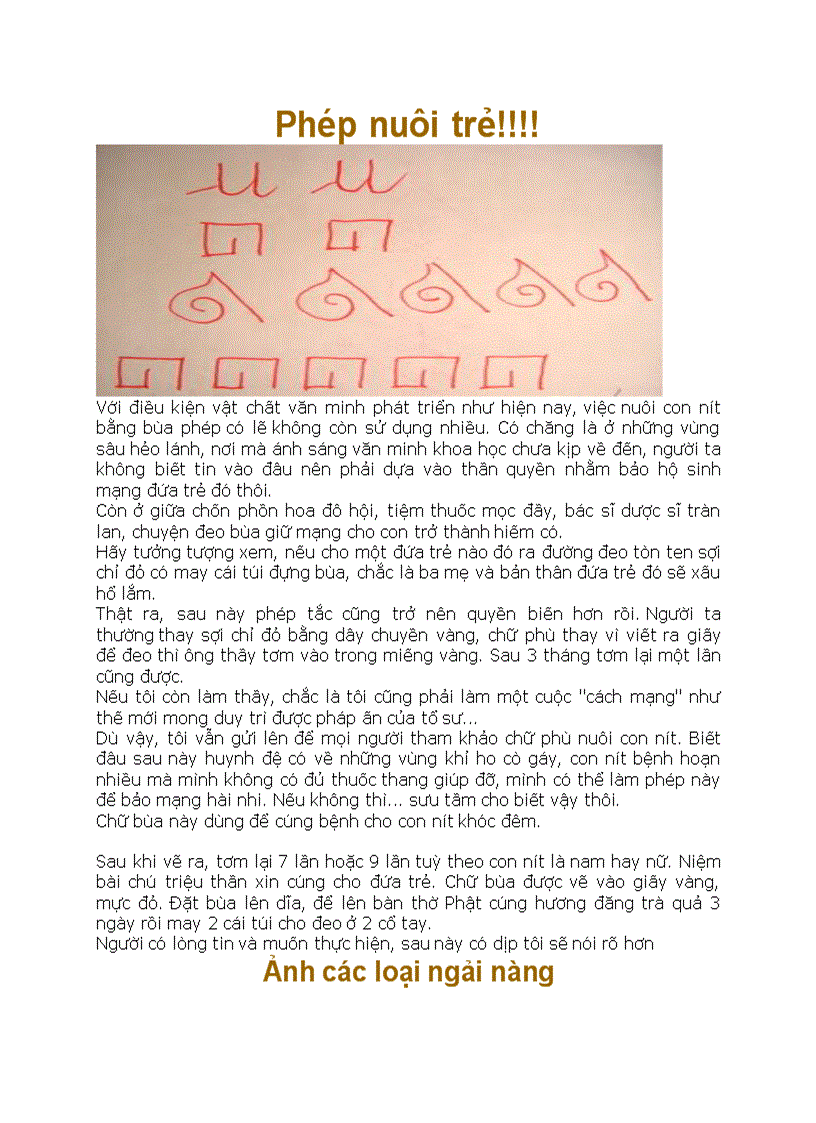 Phép nuôi trẻ!!!!
Với điều kiện vật chất văn minh phát triển như hiện nay, việc nuôi con nít
bằng bùa phép có lẽ không còn sử dụng nhiều. Có chăng là ở những vùng
sâu hẻo lánh, nơi mà ánh sáng văn minh khoa học chưa kịp về đến, người ta
không biết tin vào đâu nên phải dựa vào thần quyền nhằm bảo hộ sinh
mạng đứa trẻ đó thôi.
Còn ở giữa chốn phồn hoa đô hội, tiệm thuốc mọc đầy, bác sĩ dược sĩ tràn
lan, chuyện đeo bùa giữ mạng cho con trở thành hiếm có.
Hãy tưởng tượng xem, nếu cho một đứa trẻ nào đó ra đường đeo tòn ten sợi
chỉ đỏ có may cái túi đựng bùa, chắc là ba mẹ và bản thân đứa trẻ đó sẽ xấu
hổ lắm.
Thật ra, sau này phép tắc cũng trở nên quyền biến hơn rồi. Người ta
thường thay sợi chỉ đỏ bằng dây chuyền vàng, chữ phù thay vì viết ra giấy
để đeo thì ông thầy tơm vào trong miếng vàng. Sau 3 tháng tơm lại một lần
cũng được.
Nếu tôi còn làm thầy, chắc là tôi cũng phải làm một cuộc "cách mạng" như
thế mới mong duy trì được pháp ấn của tổ sư...
Dù vậy, tôi vẫn gửi lên để mọi người tham khảo chữ phù nuôi con nít. Biết
đâu sau này huynh đệ có về những vùng khỉ ho cò gáy, con nít bệnh hoạn
nhiều mà mình không có đủ thuốc thang giúp đỡ, mình có thể làm phép này
để bảo mạng hài nhi. Nếu không thì... sưu tầm cho biết vậy thôi.
Chữ bùa này dùng để cúng bệnh cho con nít khóc đêm.
Sau khi vẽ ra, tơm lại 7 lần hoặc 9 lần tuỳ theo con nít là nam hay nữ. Niệm
bài chú triệu thần xin cúng cho đứa trẻ. Chữ bùa được vẽ vào giấy vàng,
mực đỏ. Đặt bùa lên dĩa, để lên bàn thờ Phật cúng hương đăng trà quả 3
ngày rồi may 2 cái túi cho đeo ở 2 cổ tay.
Người có lòng tin và muốn thực hiện, sau này có dịp tôi sẽ nói rõ hơn
Ảnh các loại ngải nàng